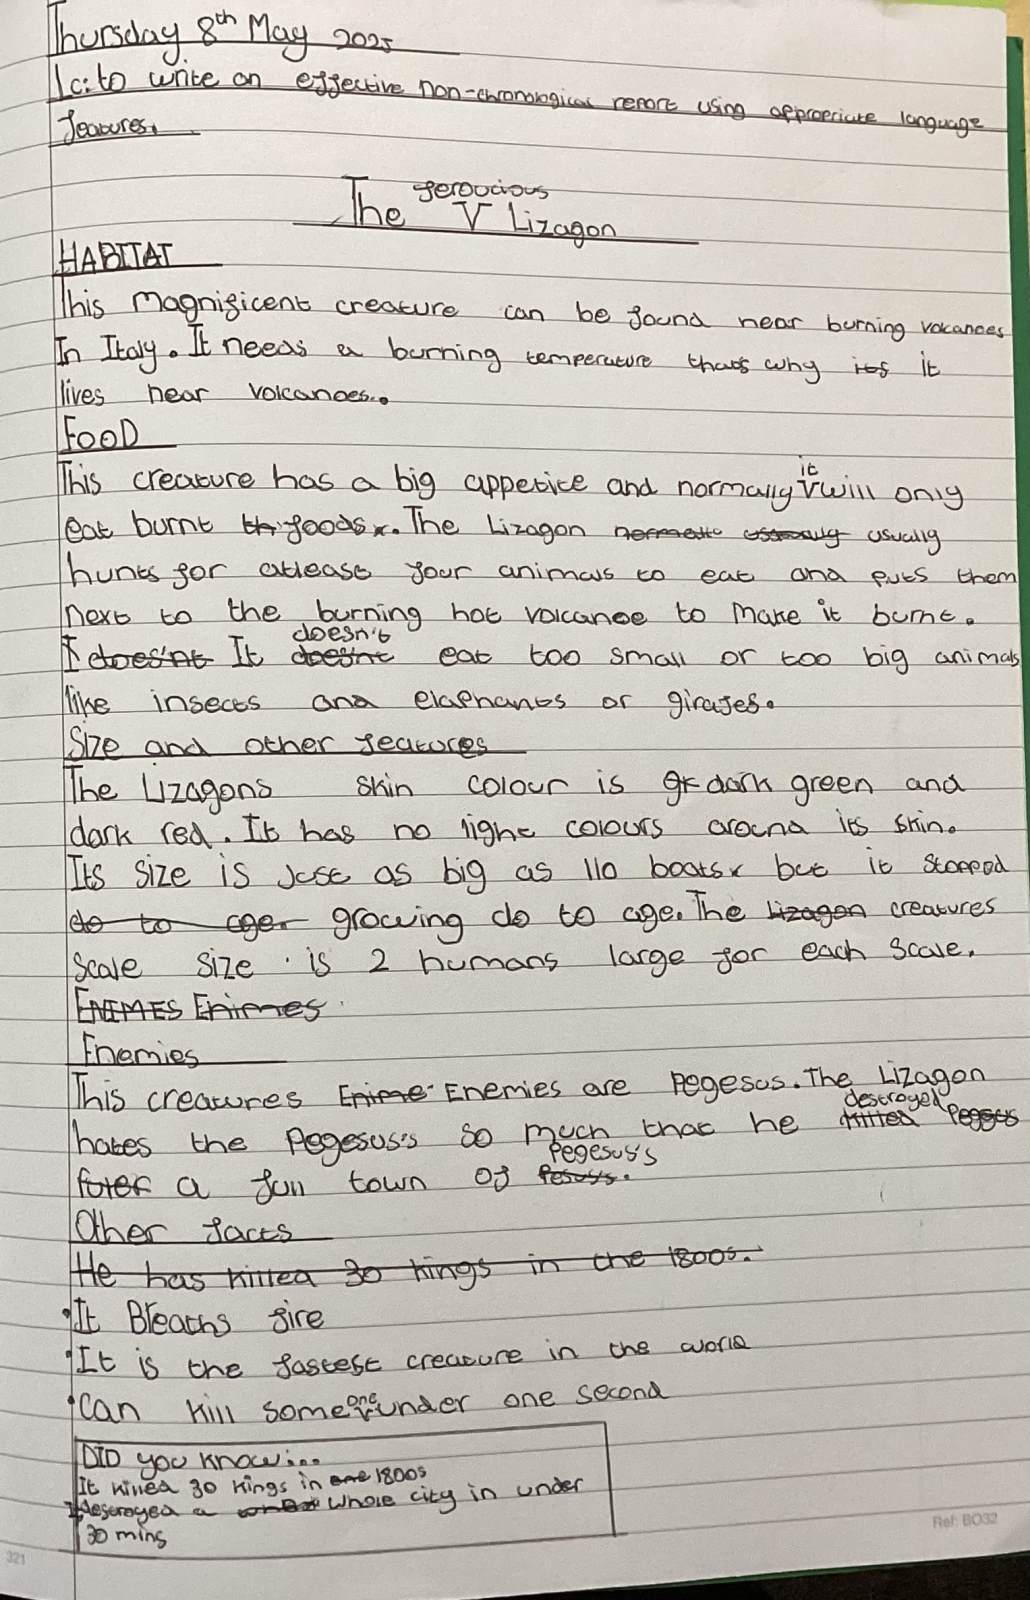 Thursday 8th May 2025
Lc: to write an effective non-chronological report using appropriate language
features.
The ferocious V Lizagon
HABITAT
This magnificent creature can be found near burning volcanoes
In Italy. It needs a burning temperature thats why its it
lives near volcanoes..
FOOD
This creature has a big appetite and normally it will only
eat burnt th foods. The Lizagon usually
hunts for atleast four animals to eat and puts them
next to the burning hot volcanoe to make it burnt.
I does'nt It doesn't doesnt eat too small or too big animals
like insects and elaphants or girafes.
Size and other features
The Lizagons skin colour is gr dark green and
dark red. It has no light colours around its skin.
Its size is just as big as 110 boats but it stopped
do to age. growing do to age. The Lizagon creatures
scale size is 2 humans large for each scale.
ENEMES Enimes
Enemies
This creatures Enime Enemies are Pegesus. The Lizagon
hates the Pegesus's so much that he killed destroyed
a full town of Pegesus's
Other facts
He has killed 30 kings in the 1800s.
• It Breaths fire
• It is the fastest creature in the world
• Can kill someone under one second
DID you know...
It killed 30 kings in one 1800s
It destroyed a whole city in under
30 mins
Ref: BO32
321